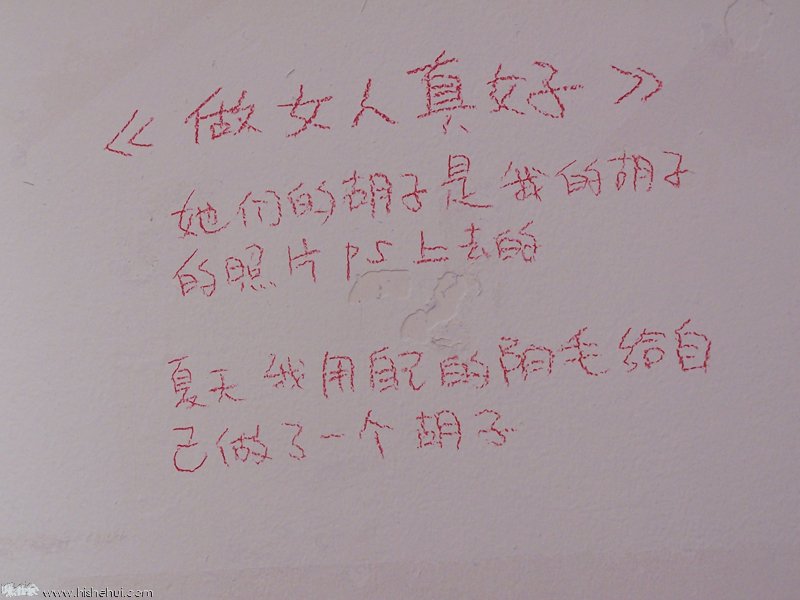 《做女人真好》
她们的胡子是我的胡子
的照片ps上去的
夏天我用自己的阳毛给自
己做了一个胡子
www.hishehui.com